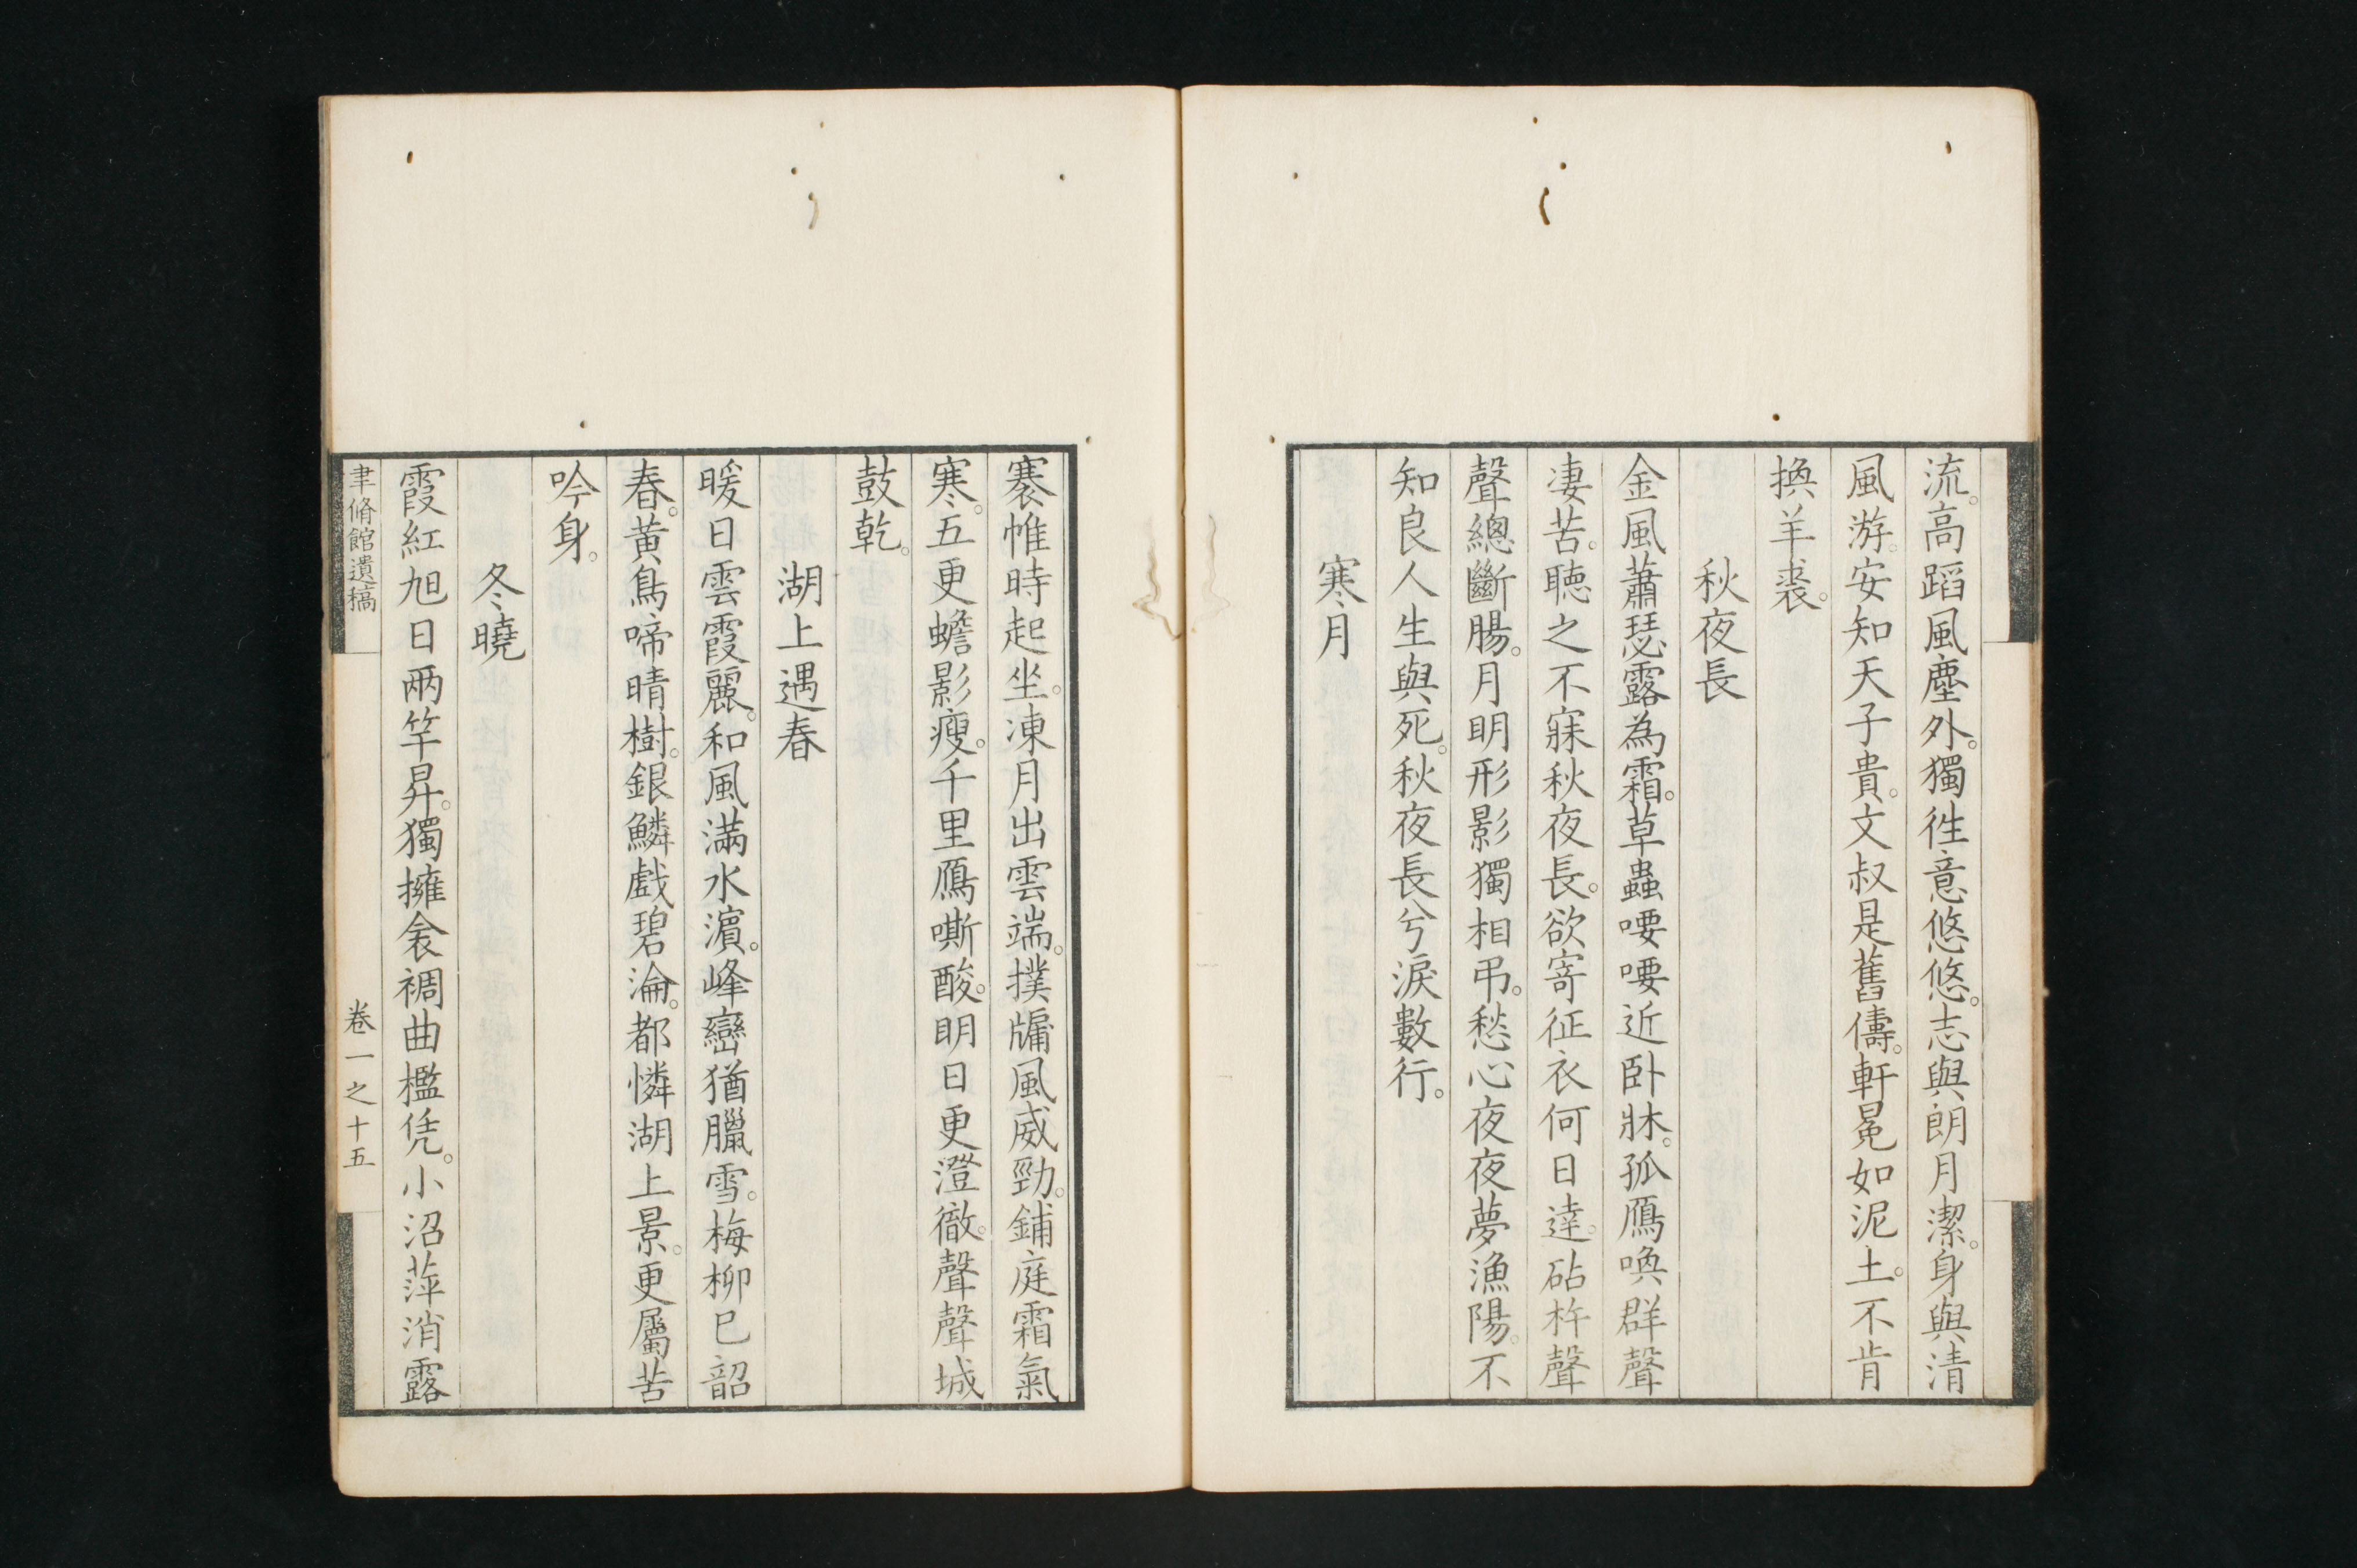 流。高蹈風塵外。獨徃意悠悠。志與朗月潔。身與清
風游。安知天子貴。文叔是舊儔。軒冕如泥土。不肯
換羊裘。
秋夜長
金風蕭瑟露為霜。草蟲喓喓近卧牀。孤鴈喚群聲
凄苦。聴之不寐秋夜長。欲寄征衣何日達。砧杵聲
聲總斷腸。月明形影獨相弔。愁心夜夜夢漁陽。不
知良人生與死。秋夜長兮淚數行。
寒月
褰帷時起坐。凍月出雲端。撲牗風威勁。鋪庭霜氣
寒。五更蟾影瘦。千里鴈嘶酸。明日更澄徹。聲聲城
鼓乾。
湖上遇春
暖日雲霞麗。和風満水濵。峰巒猶臘雪。梅柳已韶
春。黄鳥啼晴樹。銀鱗戯碧淪。都憐湖上景。更屬苦
吟身。
冬曉
霞紅旭日兩竿昇。獨擁衾裯曲檻凭。小沼萍消露
聿脩館遺稿 卷一之十五